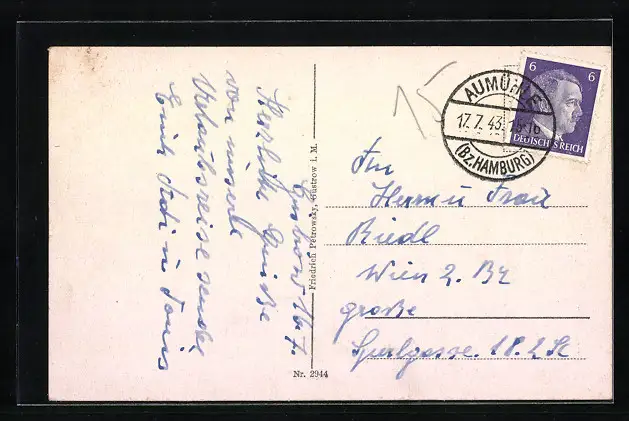 Güstrow 16.7.
Herzliche Grüße
von unserer
Urlaubsreise sendet
Euch u.
Friedrich Petrowsky, Güstrow i. M.
Nr. 2944
15
6 6
DEUTSCHES REICH
AUMÜHLE
17.7.43
(BZ.HAMBURG)
An
Herrn u Frau
Riedl
Wien 2. Bz
große
Sperlgasse 18. 2 St